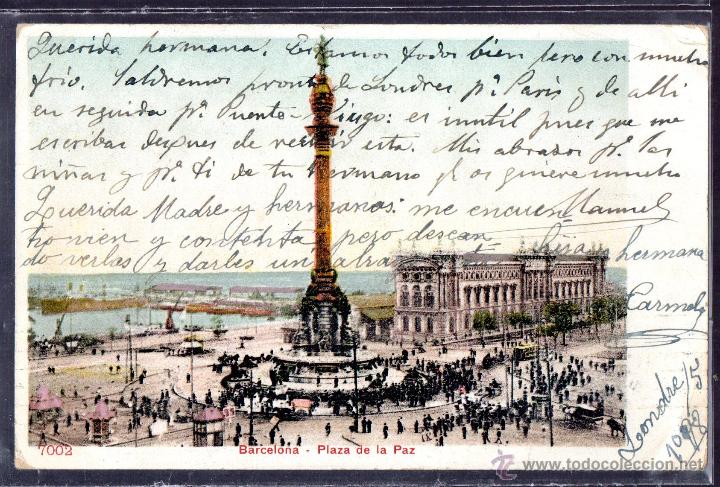 Querida hermana. Estamos todos bien pero con mucho
frio. Saldremos pronto de Londres pª Paris y de alli
en seguida pª Puente : es inutil pues que me
escribas despues de recibir esta. Mis abrazos pª las
niñas y pª ti de tu hermano q. os quiere mucho
Manuel
Querida Madre y hermanas: me encuen
tro vien y contenta pero desean
do verlas y darles un abrazo hermana
Carmela
Londres
7002
Barcelona - Plaza de la Paz
www.todocoleccion.net